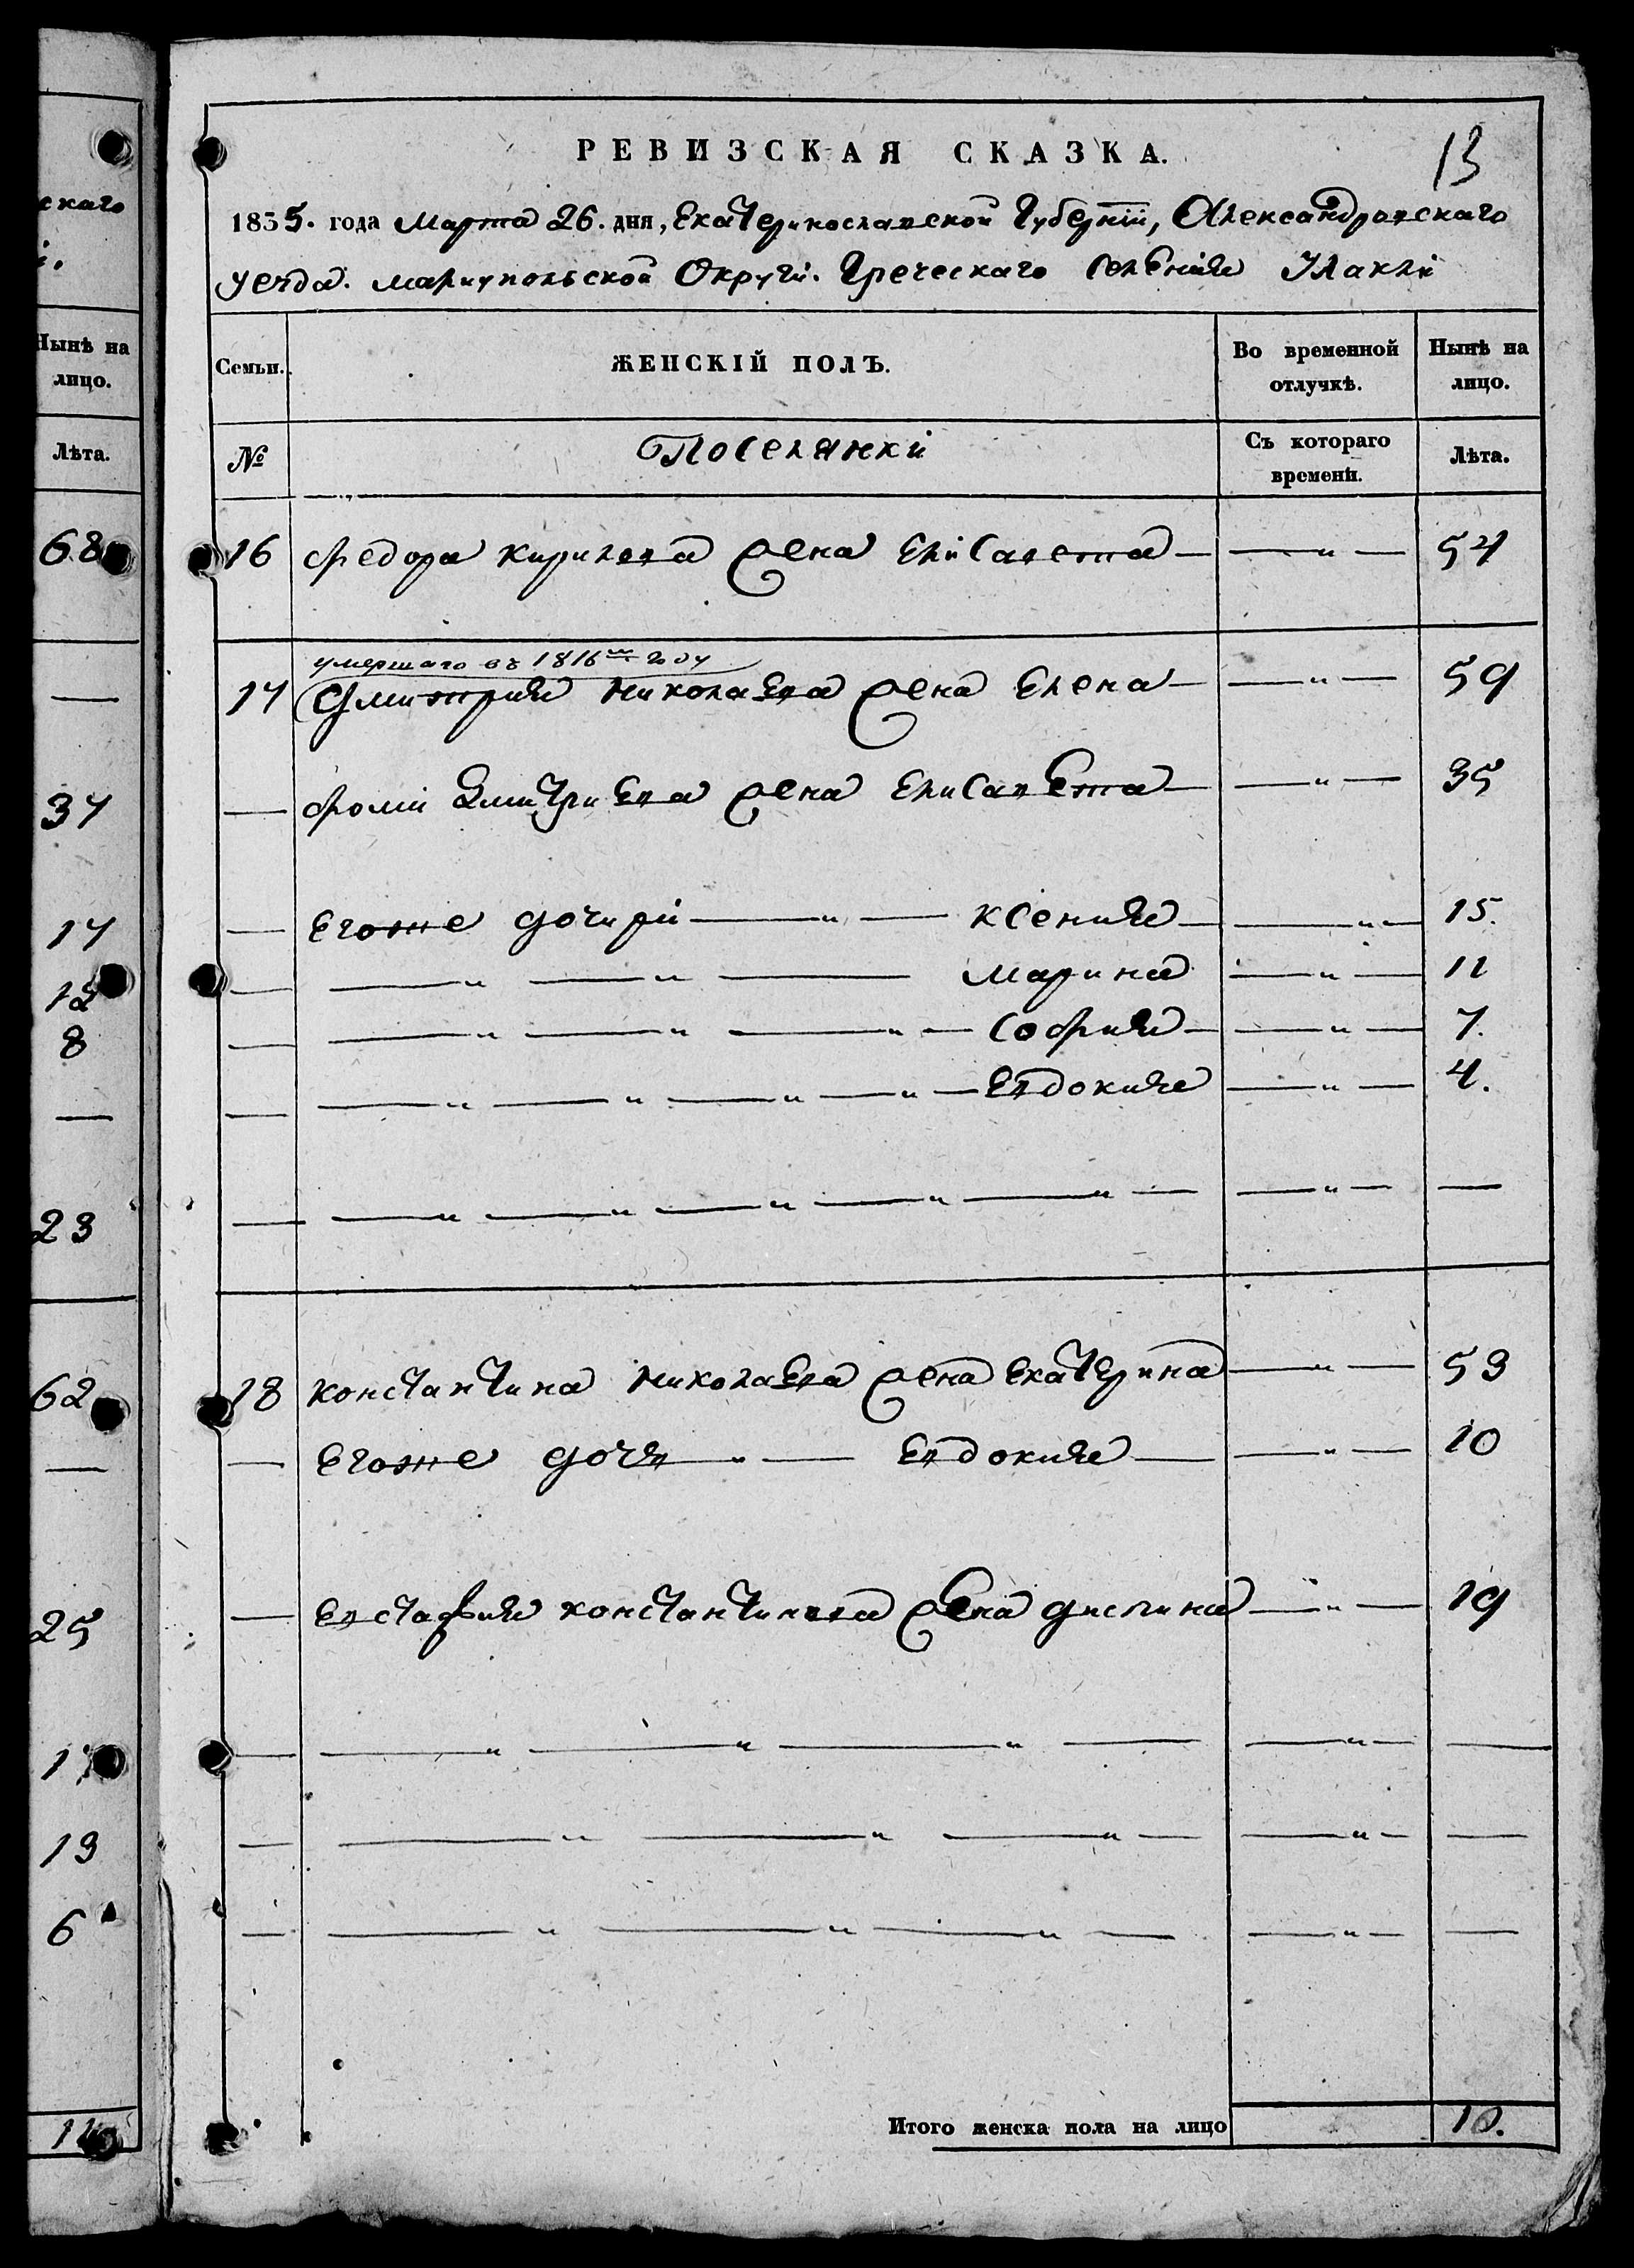 скаго
й.
Нынѣ на
лицо.
Лѣта.
68
37
17
12
8
23
62
25
13
6
РЕВИЗСКАЯ СКАЗКА.
13
1835. года Марта 26. дня, Екатеринославской Губернїи, Александровскаго
уезда. мариупольской Округи. Греческаго Селенїя Улаклй
Семьи.
ЖЕНСКІЙ ПОЛЪ.
Во временной
отлучкѣ.
Нынѣ на
лицо.
№
Поселянки
Съ котораго
времени.
Лѣта.
16 Федора Кирилова жена Елисавета — — „ — 54
умершаго въ 1816м году
17 Дмитрия Николаева жена Елена — — „ — 59
— Фомы Дмитриева жена Елисавета — — „ — 35
— Егоже дочери — „ — Ксения — — „ — 15.
— — „ — „ — Марина — „ — 11
— — „ — „ — „ — София — — „ — 7.
— — „ — „ — „ — „ — Евдокия — „ — 4.
— — „ — „ — „ — „ — „ — — „ — —
18 Константина Николаева жена Екатерина — „ — 53
— Егоже дочь — „ — Евдокия — — „ — 10
— Евстафия Константинова жена — „ — 19
— — „ — „ — „ — — „ — —
— — „ — „ — „ — — „ — —
— — „ — „ — „ — — „ — —
Итого женска пола на лицо
10.